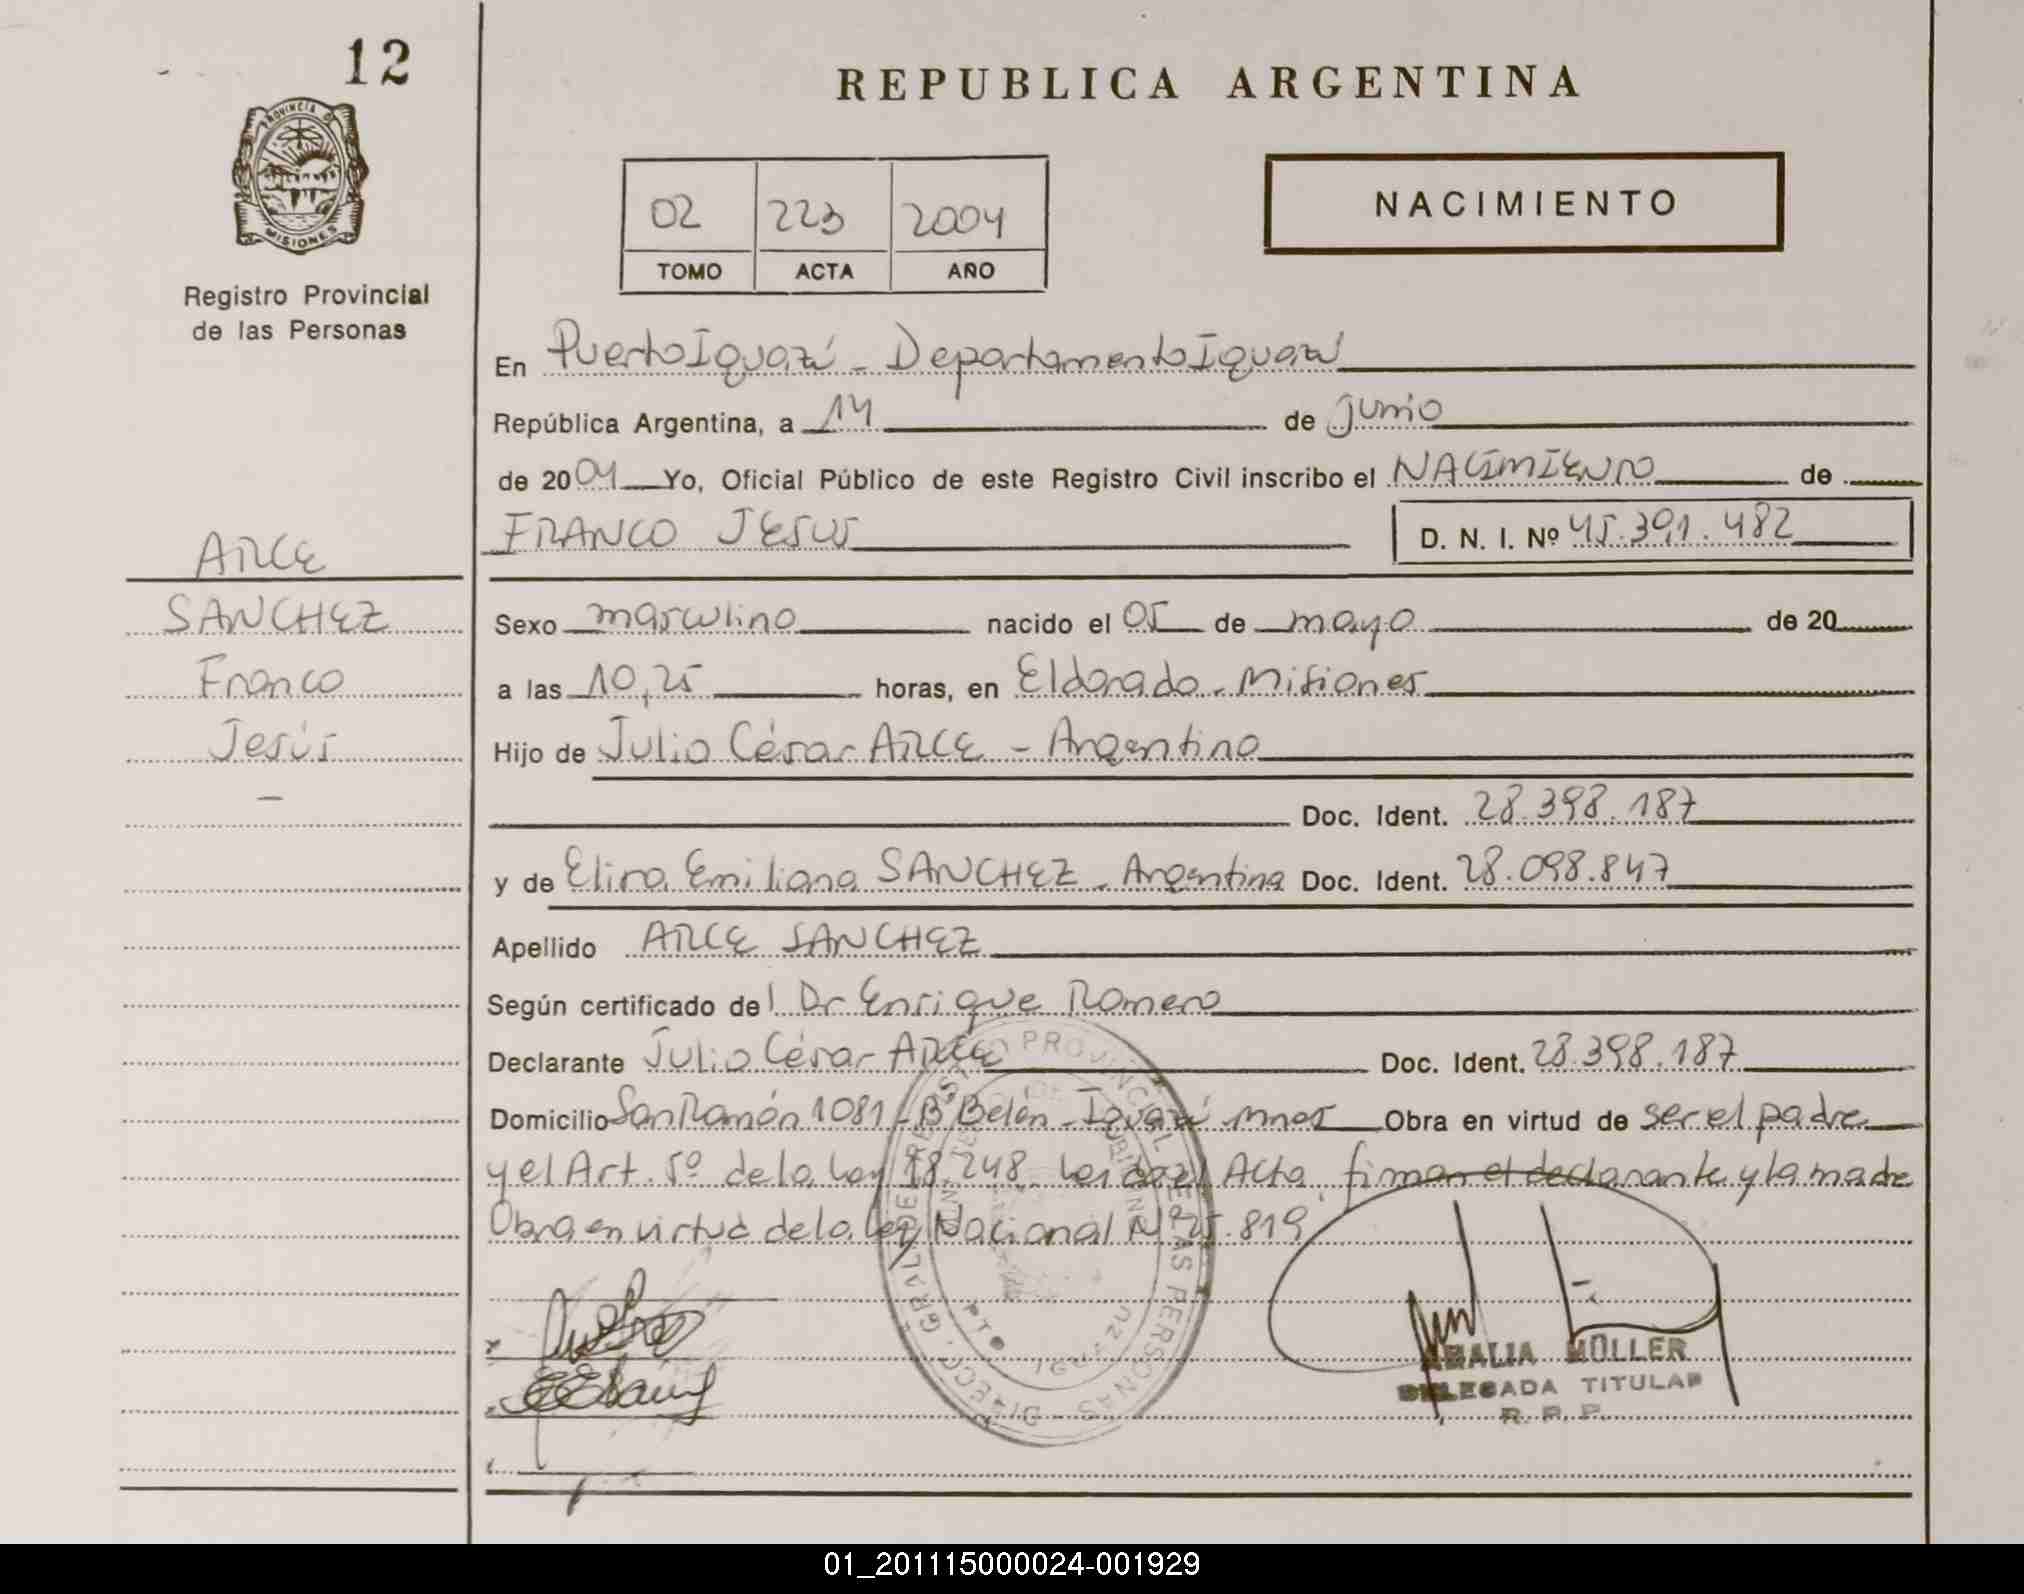 12
PROVINCIA DE
MISIONES
Registro Provincial
de las Personas
REPUBLICA ARGENTINA
02 223 2004
TOMO ACTA AÑO
NACIMIENTO
En Puerto Iguazú - Departamento Iguazú
República Argentina, a 14 de junio
de 2004 Yo, Oficial Público de este Registro Civil inscribo el NACIMIENTO de
FRANCO JESUS D. N. I. Nº 45.391.482
ARCE
SANCHEZ
Franco
Jesús
-
Sexo masculino nacido el 05 de mayo de 20
a las 10,25 horas, en Eldorado - Misiones
Hijo de Julio César ARCE - Argentino
Doc. Ident. 28.398.187
y de Elira Emiliana SANCHEZ - Argentina Doc. Ident. 28.098.847
Apellido ARCE SANCHEZ
Según certificado del Dr Enrique Romero
Declarante Julio César ARCE Doc. Ident. 28.398.187
Domicilio San Ramón 1081 - Bº Belén - Iguazú Mnes Obra en virtud de ser el padre
y el Art. 5º de la Ley 18.248 Leída el Acta, firman el declarante y la madre
Obra en virtud de la Ley Nacional Nº 25.819
DIRECC. GRAL. DE REGISTRO PROVINCIAL DE LAS PERSONAS
PTO. IGUAZU
AMALIA MÜLLER
DELEGADA TITULAR
R. P. P.
01_201115000024-001929